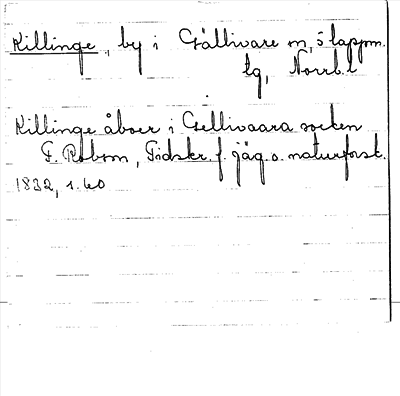 Killinge, by i Gällivare sn, ö lappm.
tg, Norrb. l
Killinge åboer i Gellivaara socken
F. Robson, Tidskr. f. jäg. o. naturforsk.
1832, s. 60